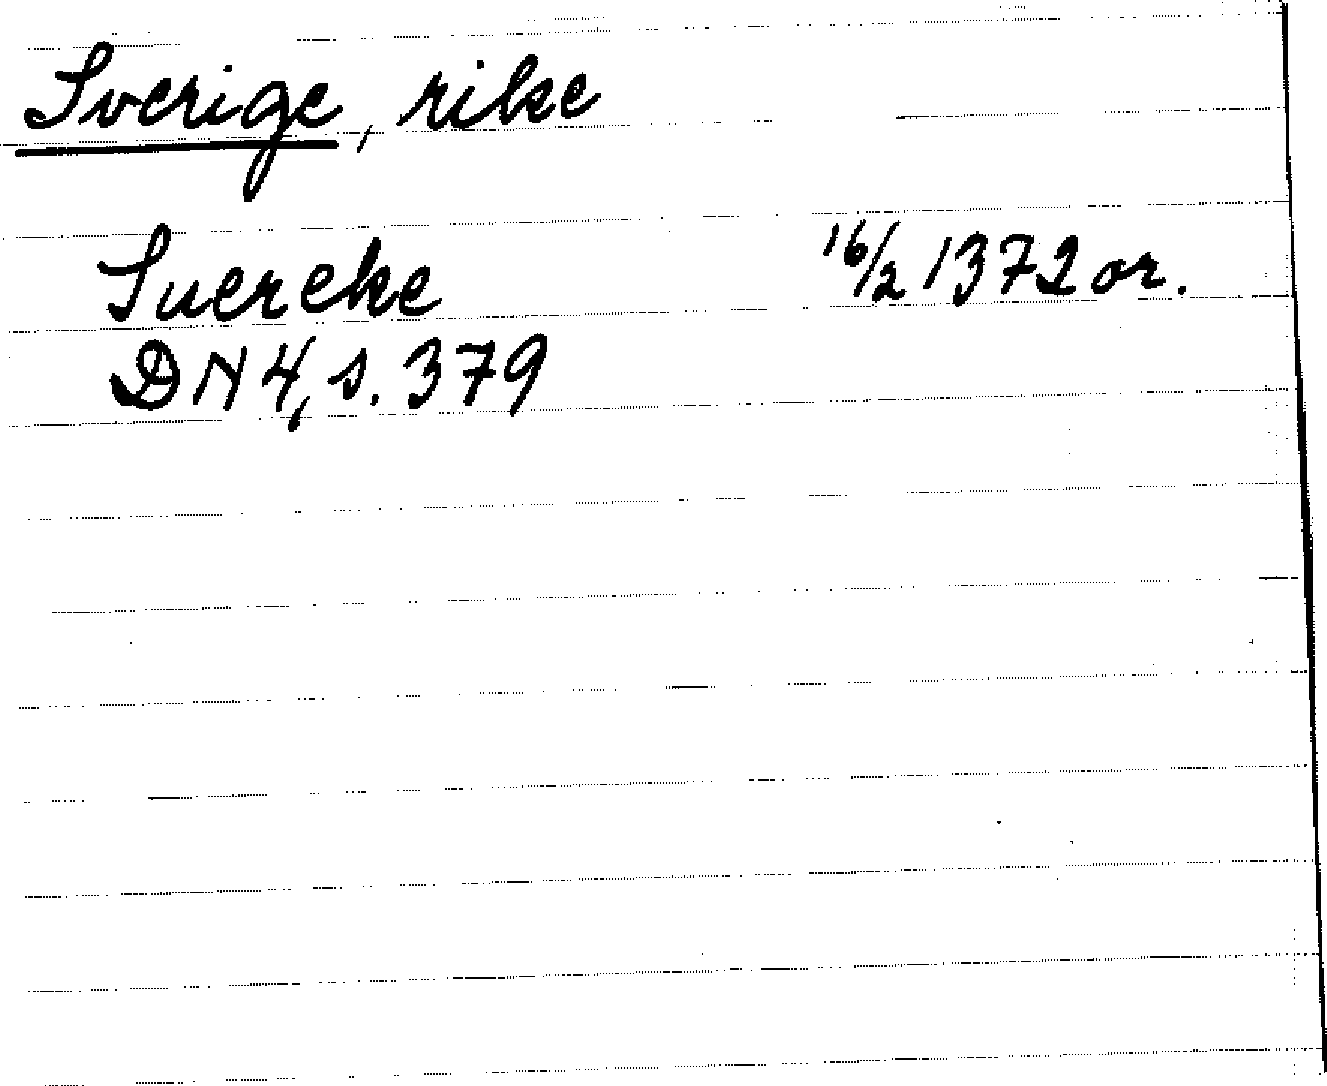 Sverige, rike
Suereke 16/2 1372 or.
DN 4, s. 379